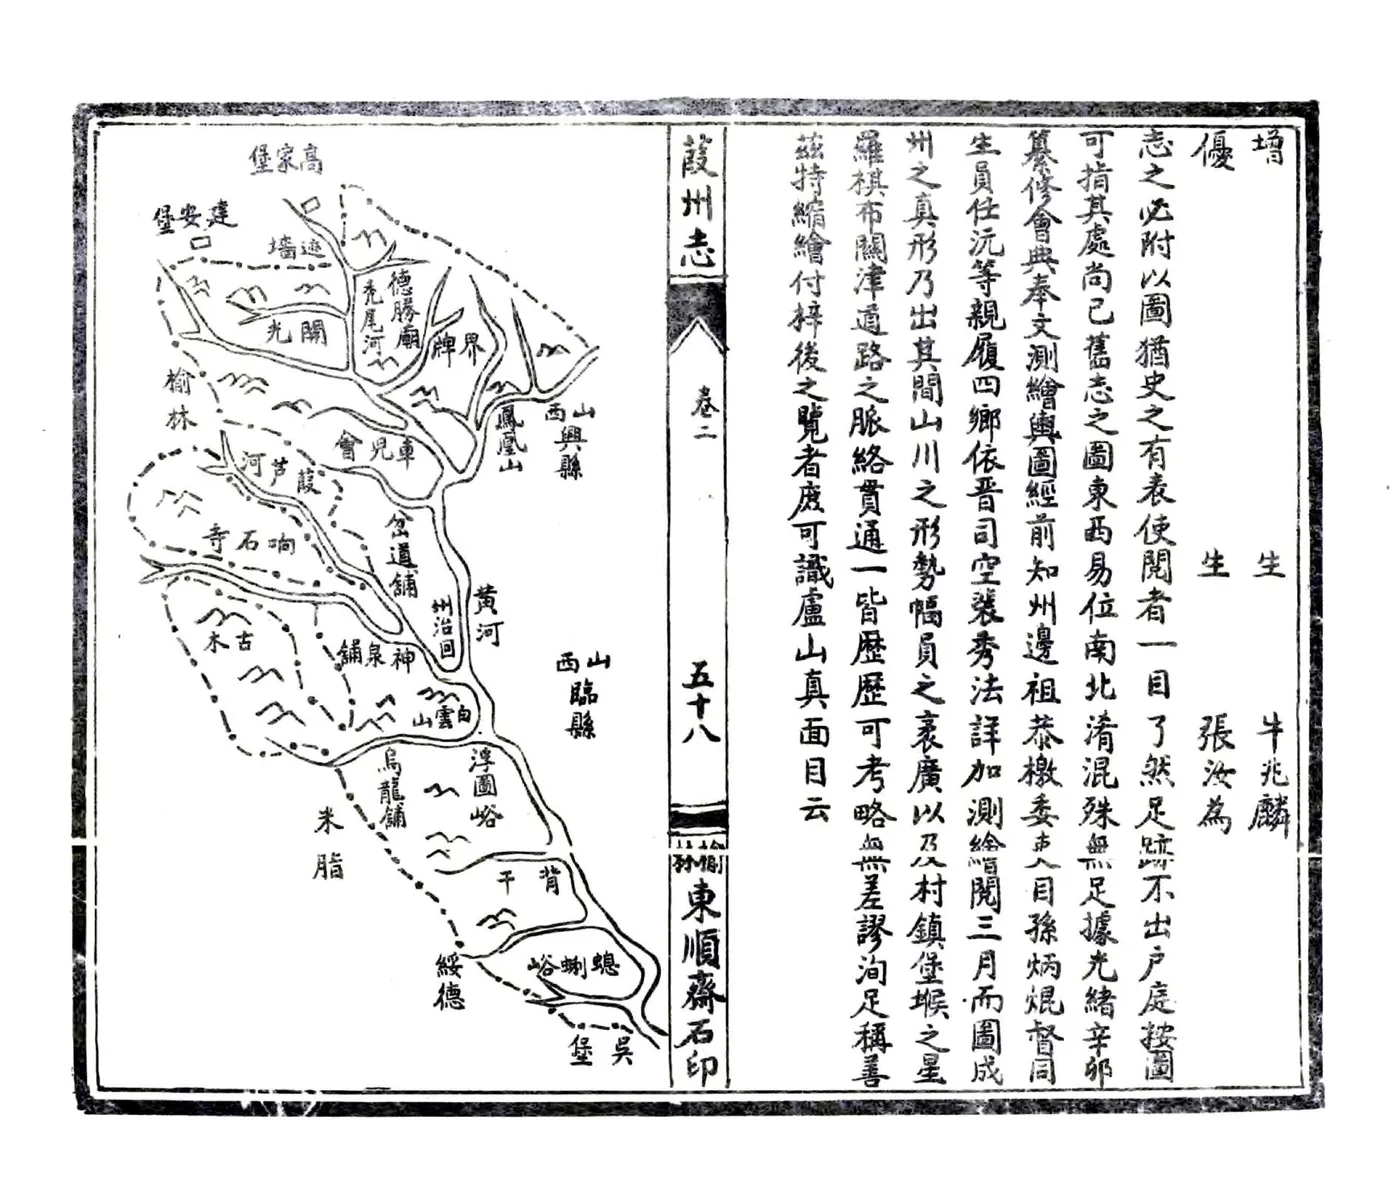 增　生　牛兆麟
優　生　張汝為
志之必附以圖猶史之有表使閱者一目了然足跡不出戶庭按圖
可指其處尚已舊志之圖東西易位南北淆混殊無足據光緒辛卯
纂修會典奉文測繪輿圖經前知州邊祖恭檄委吏目孫炳焜督同
生員任沅等親履四鄉依晉司空裴秀法詳加測繪閱三月而圖成
州之真形乃出其間山川之形勢幅員之袤廣以及村鎮堡堠之星
羅棋布關津道路之脈絡貫通一皆歷歷可考略無差謬洵足稱善
茲特縮繪付梓後之覽者庶可識廬山真面目云
葭州志
卷二
五十八
榆林東順齋石印
高家堡
建安堡
邊墻
德勝廟
禿尾河
開光
界牌
榆林
鳳凰山
山西興縣
車兒會
葭芦河
岔道舖
响石寺
黃河
州治囙
古木
神泉舖
山西臨縣
白雲山
烏龍舖
浮圖峪
米脂
背干
綏德
螅蜊峪
吳堡